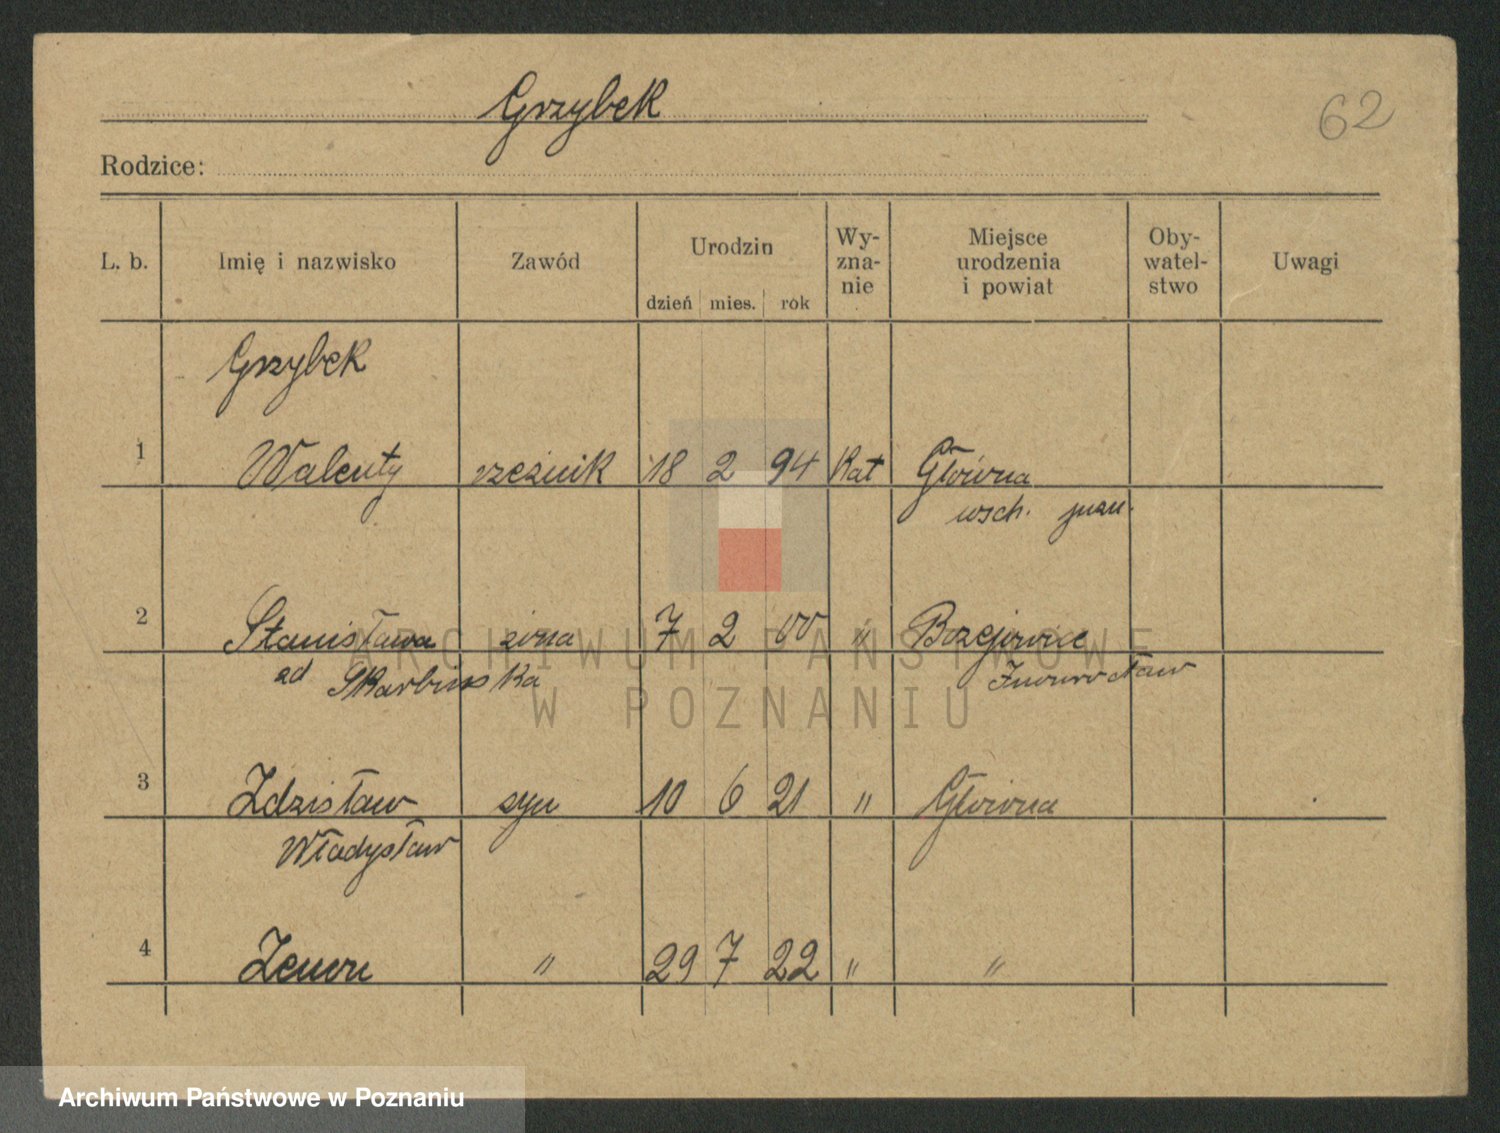 Grzybek
62
Rodzice:
L. b. Imię i nazwisko Zawód Urodzin dzień mies. rok Wy-zna-nie Miejsce urodzenia i powiat Oby-watel-stwo Uwagi
Grzybek
1 Walenty rzeźnik 18 2 94 Kat Główna
wsch.
2 Stanisława żona 7 2 00 " Bożejowice
Inowrocław
3 Zdzisław syn 10 6 21 " Główna
Władysław
4 Zenon " 29 7 22 " "
ARCHIWUM PAŃSTWOWE
W POZNANIU
Archiwum Państwowe w Poznaniu